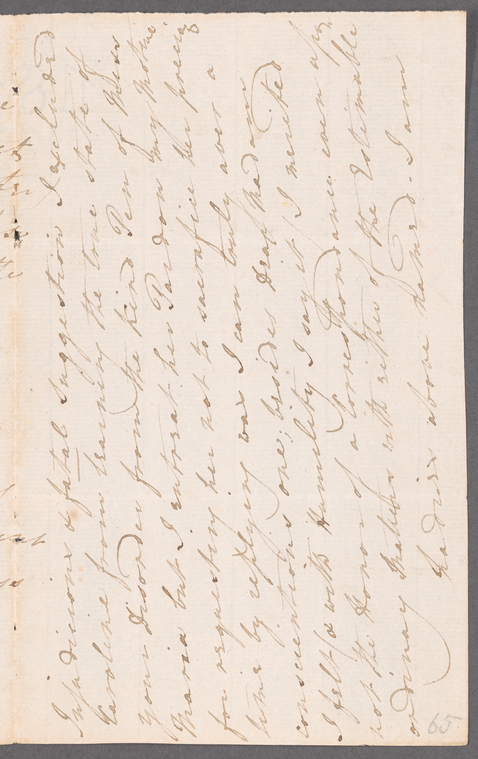 Injudicious & fatal suggestion I excluded
Caroline from learning the true state of
your disorder from the kind Pen of Miss
Maria but I entreat her Pardon my motive
for requesting her not to sacrifice her precious
time by replying was I can truly aver a
conscientious one; besides Dear Madam
I felt & with Humility I say it I merited
not the Honor of a Correspondance even after
ordinary matters with either of the Estimable
Ladies above named. I am
65